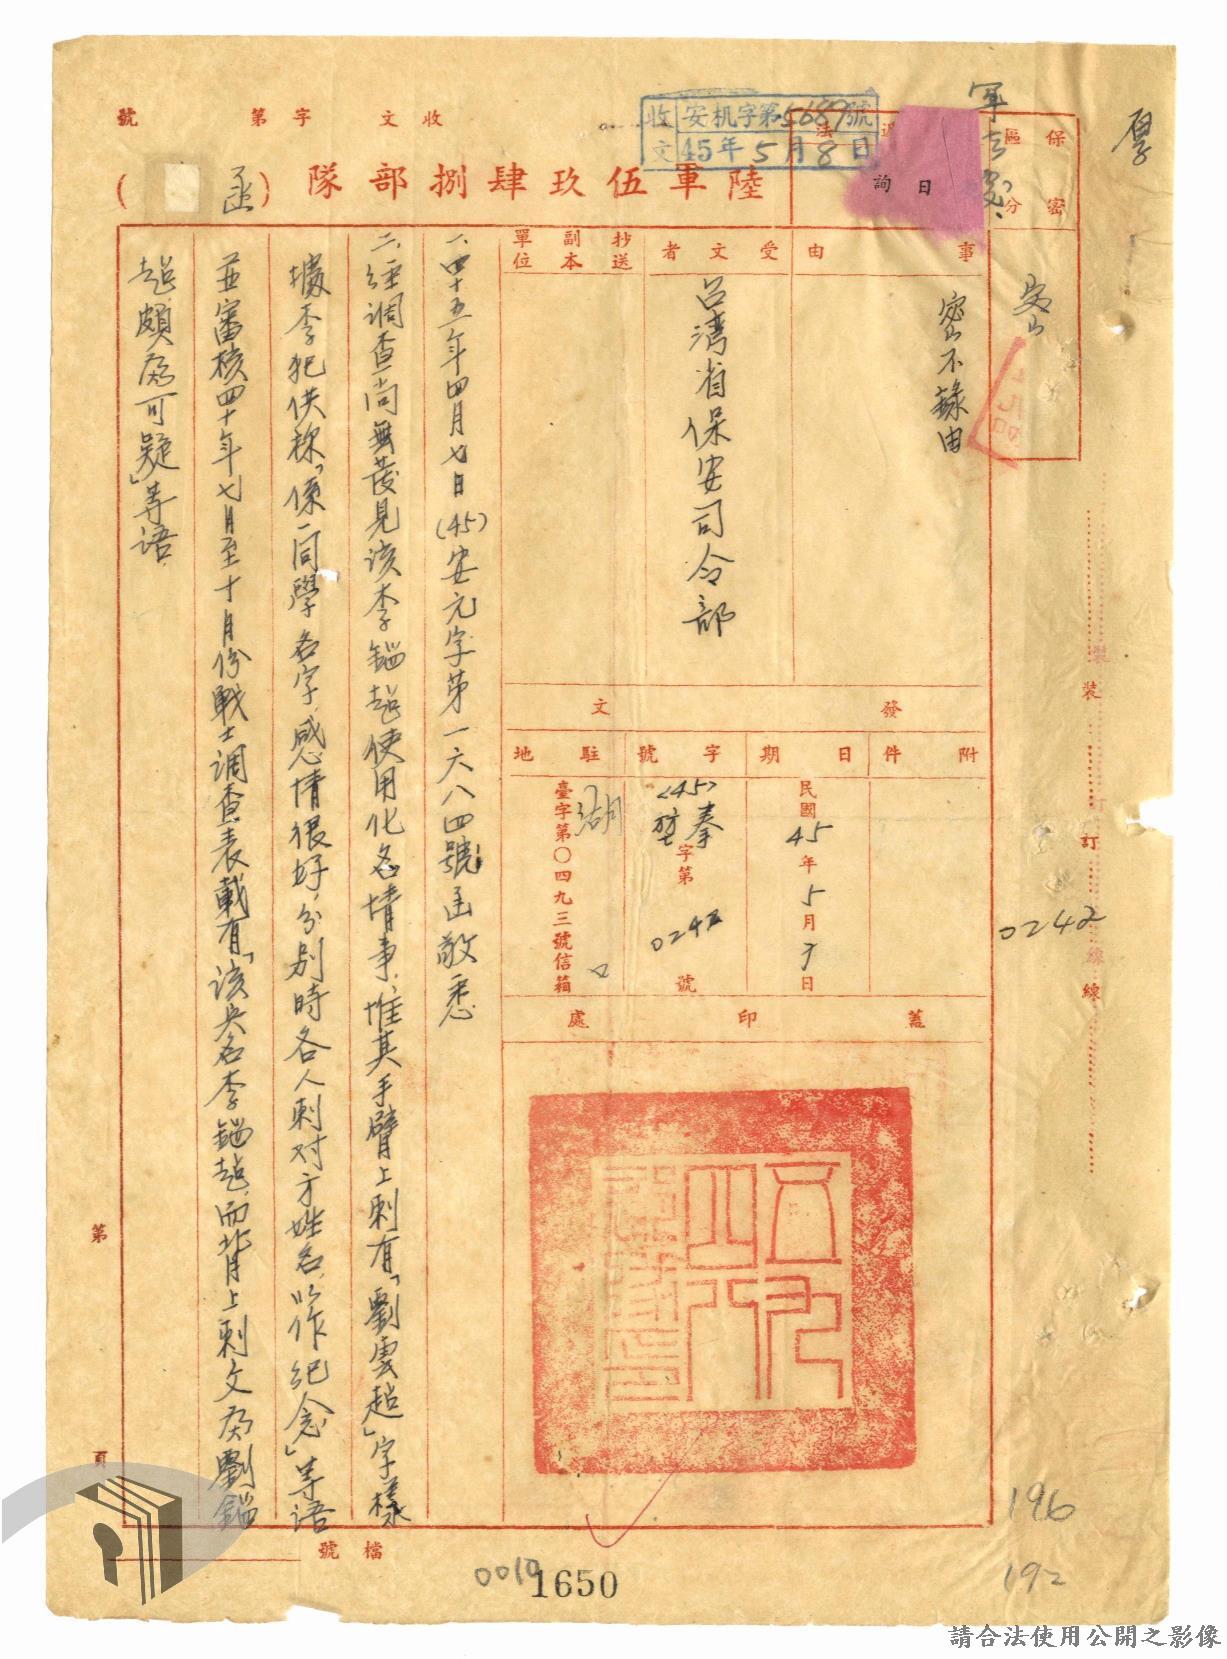 收文 字第 號
收文 安机字第5689號
45年5月8日
陸軍伍玖肆捌部隊（ 函）
保密區分
密
事由
密不錄由
受文者
台灣省保安司令部
抄送副本單位
發文
附件
日期
民國45年5月 日
字號
(45)堃秦字第0242號
駐地
湖口
臺字第〇四九三號信箱
蓋印處
一、四十五年四月七日(45)安元字第一六八四號函敬悉
二、經調查尚無發見該李 超使用化名情事，惟其手臂上刺有「劉雲超」字樣
據李犯供称「係一同學名字，感情很好，分別時各人刺对方姓名，以作纪念」等语
並審核四十年七月至十月份戰士調查表載有「该兵名李 超，而背上刺文為劉
超，頗為可疑」等语
裝 訂 線
0242
第 頁
檔號
0010
1650
196
192
請合法使用公開之影像